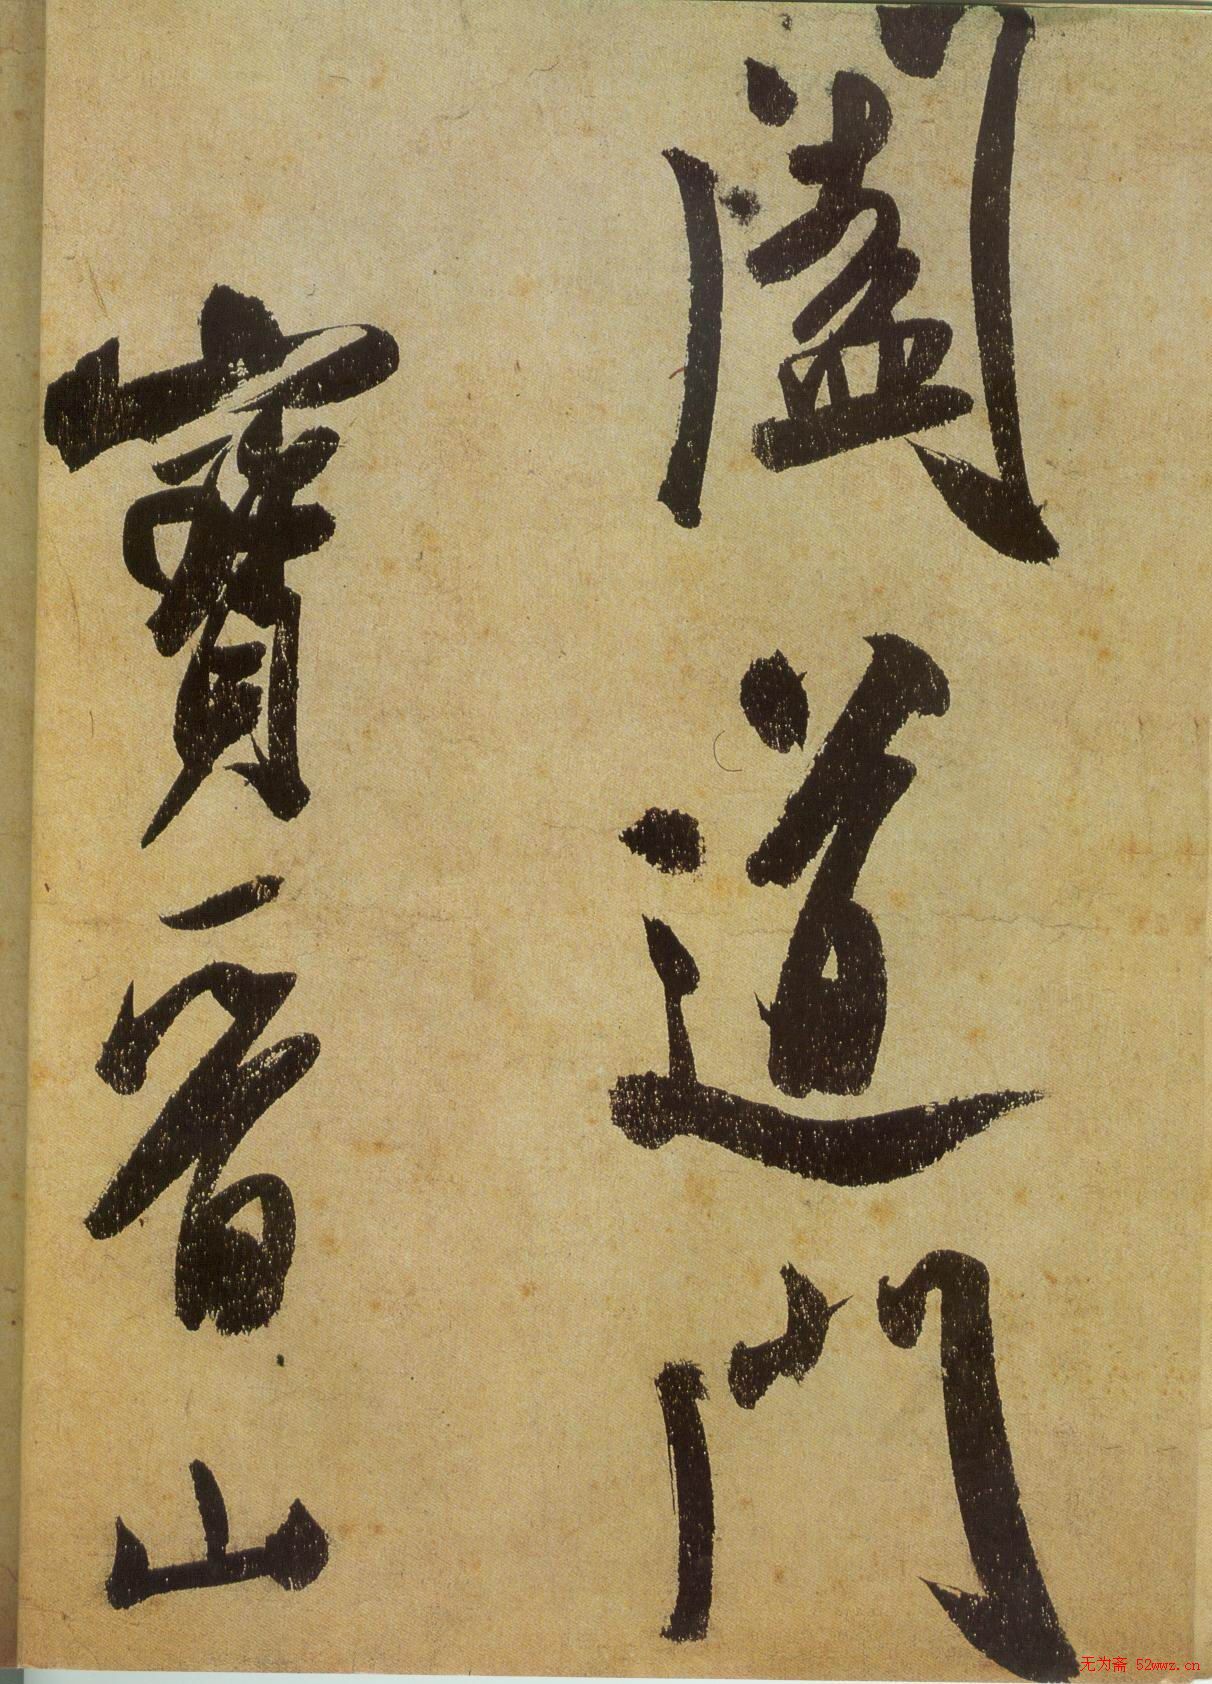 闔道門
寶晉山
无为斋 52wwz.cn